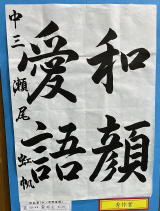 和顔
愛語
中三 瀬尾 虹帆
秀作賞